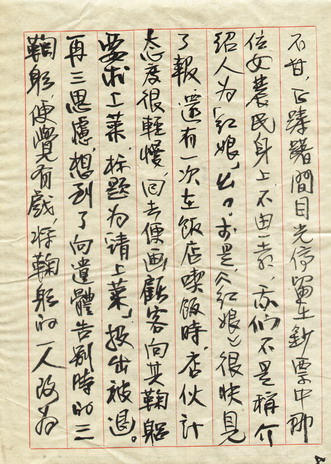 不甘。正躊躇間目光停留在鈔票中那
位女農民身上不由一亮,我们不是稱介
绍人为「紅娘」 于是《紅娘》很快見
了報。還有一次在飯店喫飯時,店伙计
态度很輕慢,回去便画顧客向其鞠躬
要求上菜,标题为“请上菜”,投出被退。
再三思慮,想到了向遺體告别時的三
鞠躬,便覺有戲,将鞠躬的一人改为